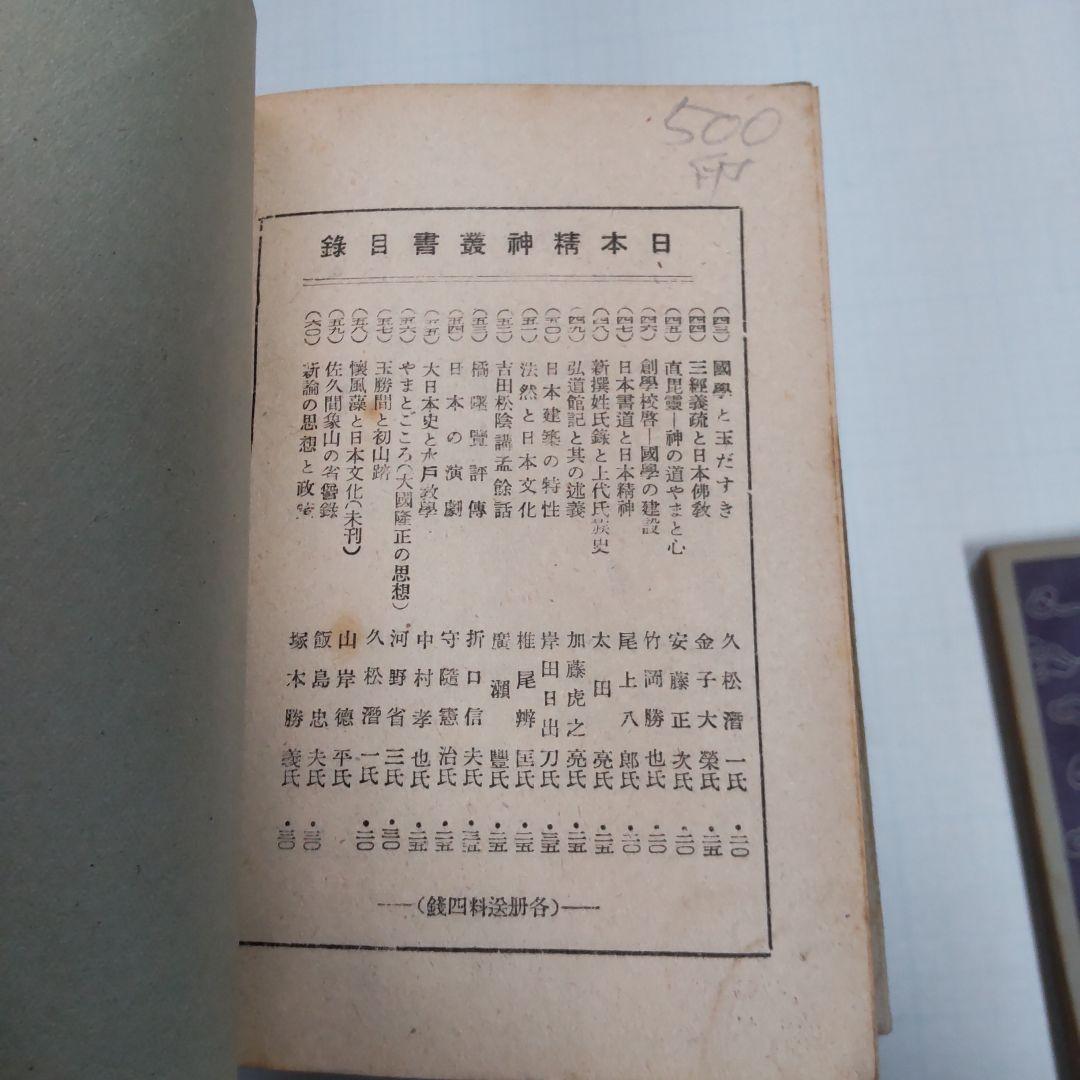 500
印
日本精神叢書目錄
(四三) 國學と玉だすき 久松潛一氏 ・二〇
(四四) 三經義疏と日本佛敎 金子大榮氏 ・二五
(四五) 直毘靈―神の道やまと心 安藤正次氏 ・二〇
(四六) 創學校啓―國學の建設 竹岡勝也氏 ・二〇
(四七) 日本書道と日本精神 尾上八郎氏 ・二〇
(四八) 新撰姓氏錄と上代氏族史 太田亮氏 ・二五
(四九) 弘道館記と其の述義 加藤虎之亮氏 ・二五
(五〇) 日本建築の特性 岸田日出刀氏 ・三五
(五一) 法然と日本文化 椎尾辨匡氏 ・二五
(五二) 吉田松陰講孟餘話 廣瀨豐氏 ・二五
(五三) 橘曙覽評傳 折口信夫氏 ・三五
(五四) 日本の演劇 守隨憲治氏 ・二五
(五五) 大日本史と水戶敎學 中村孝也氏 ・二五
(五六) やまとごころ(大國隆正の思想) 河野省三氏 ・三〇
(五七) 玉勝間と初山踏 久松潛一氏 ・二〇
(五八) 懷風藻と日本文化(未刊) 山岸德平氏
(五九) 佐久間象山の省諐錄 飯島忠夫氏 ・三〇
(六〇) 新論の思想と政 塚本勝義氏 ・三〇
―(各册送料四錢)―